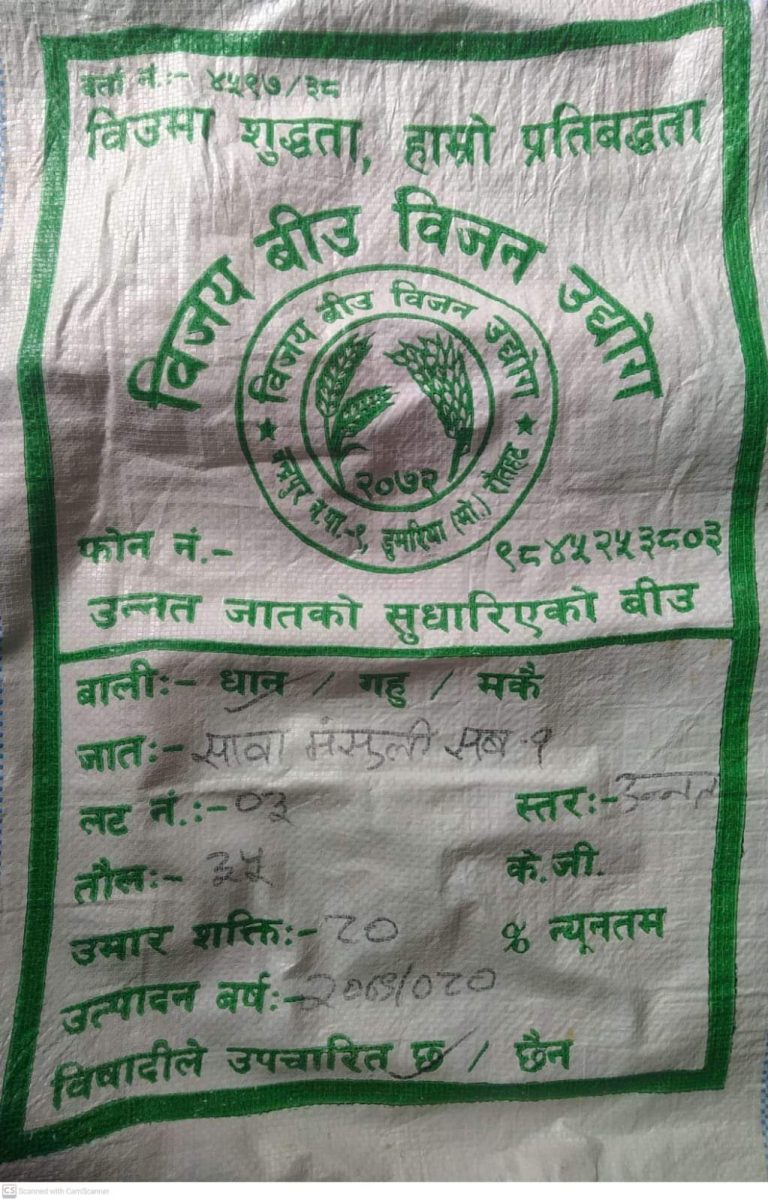 दर्ता नं.:- ४५९७/३८
विउमा शुद्धता, हाम्रो प्रतिबद्धता
विजय बीउ विजन उद्योग
विजय बीउ विजन उद्योग
२०७२
चन्द्रपुर न.पा.-९, डुमरिया (मो.) रौतहट
फोन नं.- ९८४५२५३८०३
उन्नत जातको सुधारिएको बीउ
बाली:- धान / गहु / मकै
जात:- सावा मंसुली सब-१
लट नं.:- ०३ स्तर:- उन्नत
तौल:- ३५ के.जी.
उमार शक्ति:- ८० % न्यूनतम
उत्पादन बर्ष:- २०७९/०८०
विषादीले उपचारित छ / छैन
CS Scanned with CamScanner